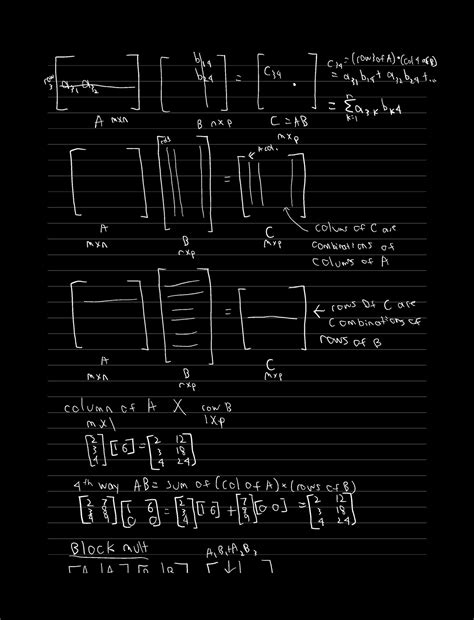 row 3 a₃₁ a₃₂ b₁₄ b₂₄ = C₃₄ C₃₄ = (row 3 of A)•(col 4 of B)
= a₃₁b₁₄ + a₃₂b₂₄ + ...
= Σₖ₌₁ⁿ a₃ₖ bₖ₄
A m×n B n×p C = AB
m×p
col =
A B C
m×n n×p m×p
colums of C are
combinations of
colums of A
=
A B C
m×n n×p m×p
← rows of C are
combinations of
rows of B
column of A X row B
m×1 1×p
[2 3 4] [1 6] = [2 12 3 18 4 24]
4th way AB = sum of (col of A) × (rows of B)
[2 7 3 8 4 9] [1 6 0 0] = [2 3 4] [1 6] + [7 8 9] [0 0] = [2 12 3 18 4 24]
Block mult